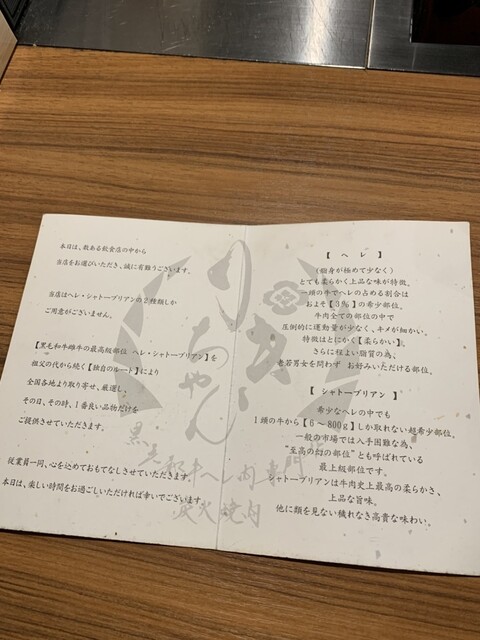 本日は、数ある飲食店の中から
当店をお選びいただき、誠に有難うございます。
当店はヘレ・シャトーブリアンの2種類しか
ご用意がございません。
【黒毛和牛雌牛の最高級部位 ヘレ・シャトーブリアン】を
祖父の代から続く【独自のルート】により
全国各地より取り寄せ、厳選し、
その日、その時、1番良い品物だけを
ご提供させていただきます。
従業員一同、心を込めておもてなしさせていただきます。
本日は、楽しい時間をお過ごしいただければ幸いでございます。
【 ヘレ 】
(脂身が極めて少なく)
とても柔らかく上品な味が特徴。
一頭の牛でヘレの占める割合は
およそ【3%】の希少部位。
牛肉全ての部位の中で
圧倒的に運動量が少なく、キメが細かい。
特徴はとにかく【柔らかい】
さらに程よい脂質の為、
老若男女を問わず お好みいただける部位。
【 シャトーブリアン 】
希少なヘレの中でも
1頭の牛から【6~800g】しか取れない超希少部位。
一般の市場では入手困難な為、
"至高の幻の部位"とも呼ばれている
最上級部位です。
シャトーブリアンは牛肉史上最高の柔らかさ、
上品な旨味。
他に類を見ない穢れなき高貴な味わい。
黒毛和牛ヘレ肉専門店
炭火焼肉